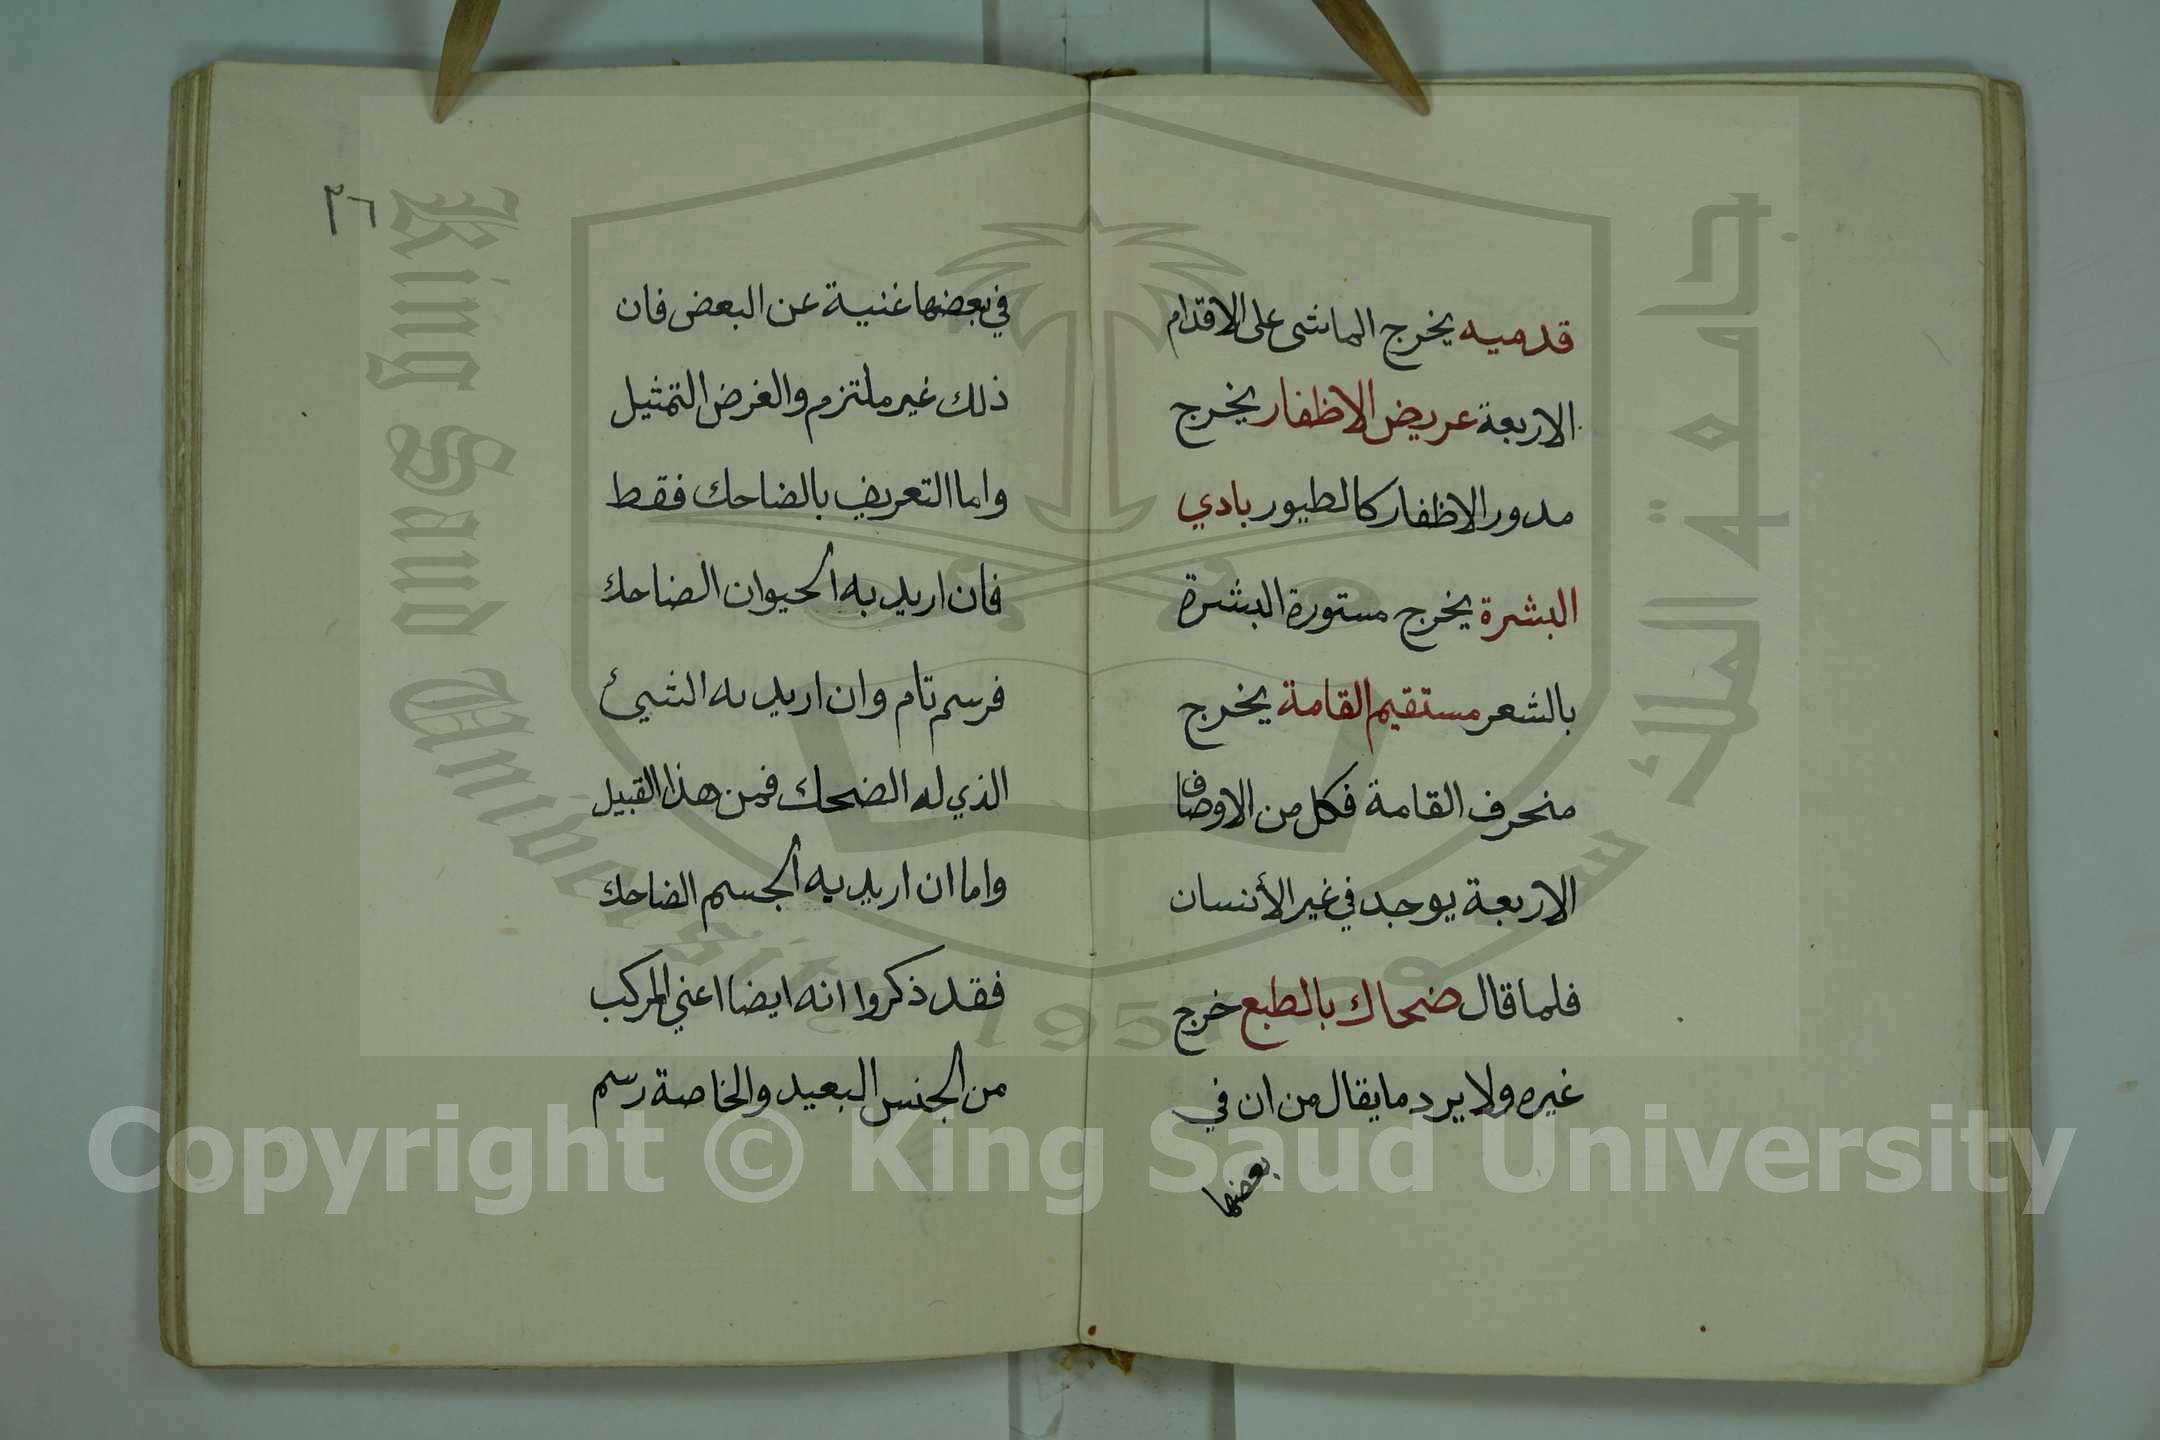 قدميه يخرج الماشى على الاقدام
الاربعة عريض الاظفار يخرج
مدور الاظفار كالطيور بادي
البشرة يخرج مستورة البشرة
بالشعر مستقيم القامة يخرج
منحرف القامة فكل من الاوصاف
الاربعة يوجد في غير الأنسان
فلما قال ضحاك بالطبع خرج
غيره ولا يرد ما يقال من ان في
بعضها
٢٦
في بعضها غنية عن البعض فان
ذلك غير ملتزم والغرض التمثيل
واما التعريف بالضاحك فقط
فان اريد به الحيوان الضاحك
فرسم تام وان اريد به الشيئ
الذي له الضحك فمن هذا القبيل
واما ان اريد به الجسم الضاحك
فقد ذكروا انه ايضا اعني المركب
من الجنس البعيد والخاصة رسم
King Saud University
جامعة الملك سعود
1957
Copyright © King Saud University